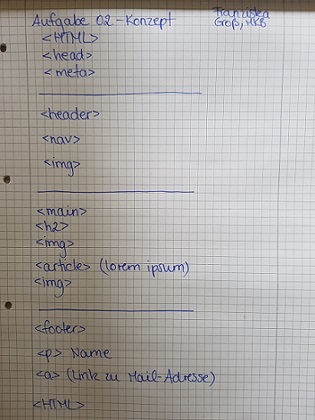 Aufgabe 02 - Konzept
Franziska
Groß, MKB
<HTML>
<head>
<meta>
<header>
<nav>
<img>
<main>
<h2>
<img>
<article> (lorem ipsum)
<img>
<footer>
<p> Name
<a> (Link zu Mail-Adresse)
<HTML>